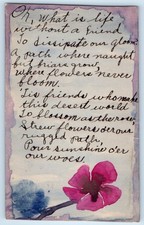 Oh, What is life
without a friend
To dissipate our gloom
A path where naught
but briars grow
Where flowers never
bloom.
Tis friends who make
this desert world
To blossom as the rose
Strew flowers o'er our
rugged path,
Pour sunshine o'er
our woes